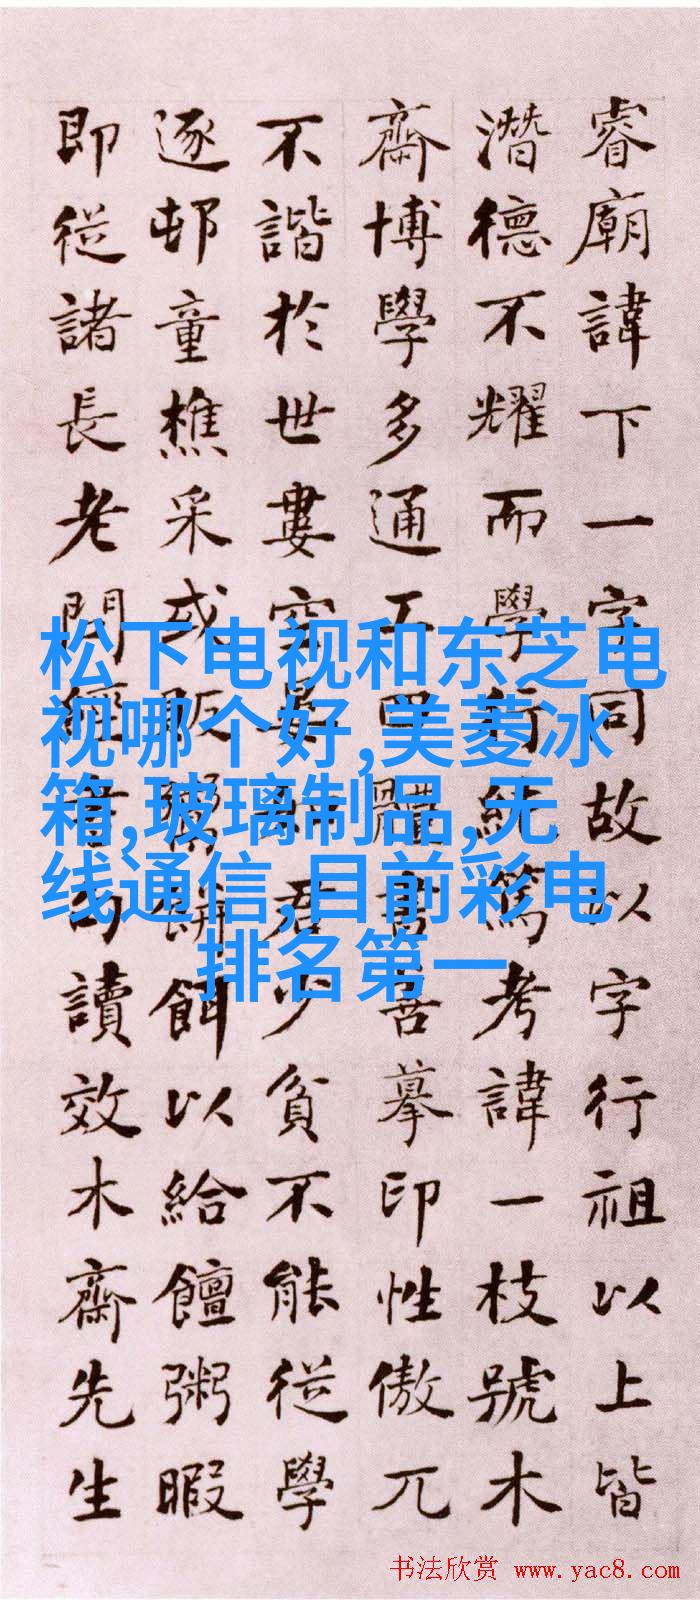 睿廟諱下一字同故以字行祖以上皆
潛德不耀而學行純篤考諱一枝號木
齋博學多通工四體書善摹印性傲兀
不諧於世婁空晏如君少貧不能從學
逐邨童樵采或販鬻餅餌以給饘粥暇
即從諸長老問經書句讀效木齋先生
松下电视和东芝电
视哪个好,美菱冰
箱,玻璃制品,无
线通信,目前彩电
排名第一
书法欣赏 www.yac8.com